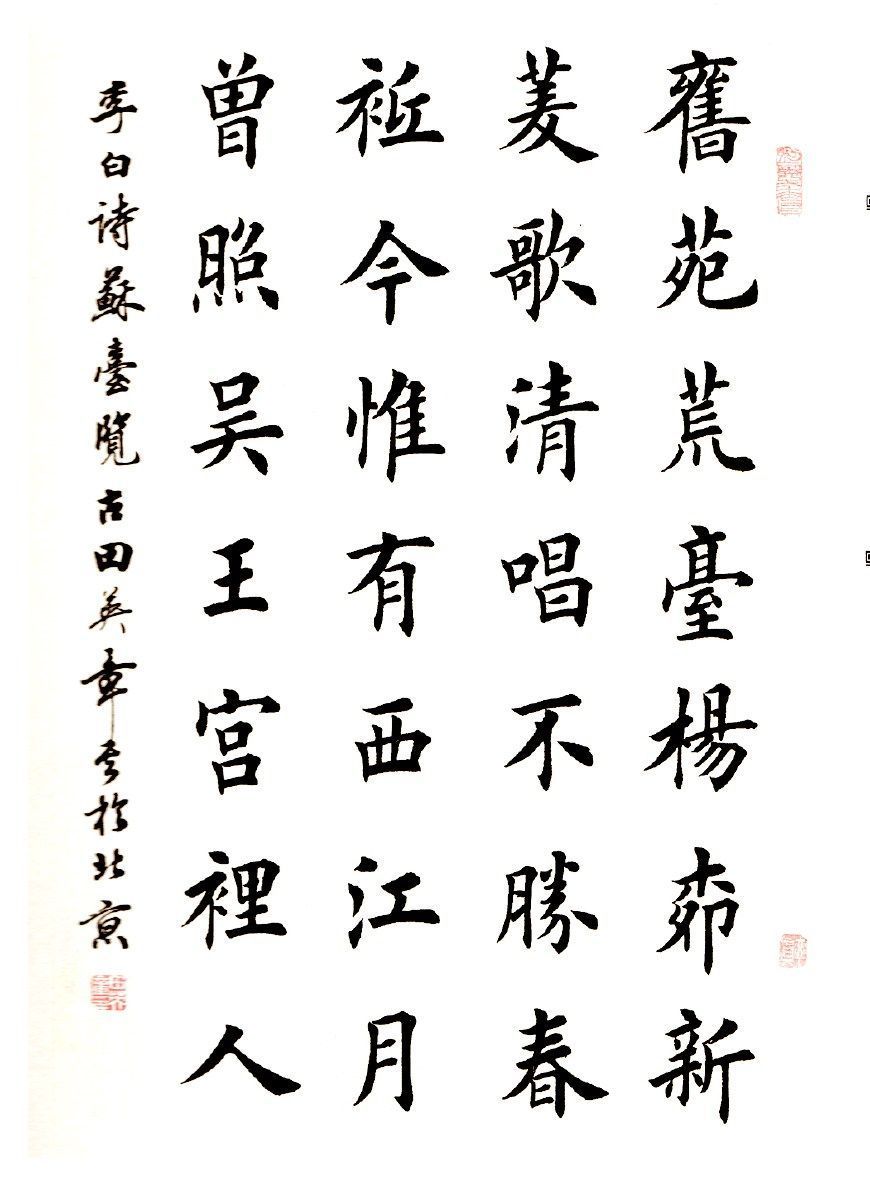 舊苑荒臺楊柳新
菱歌清唱不勝春
衹今惟有西江月
曾照吴王宫裡人
李白詩蘇臺覽古田英章书於北京